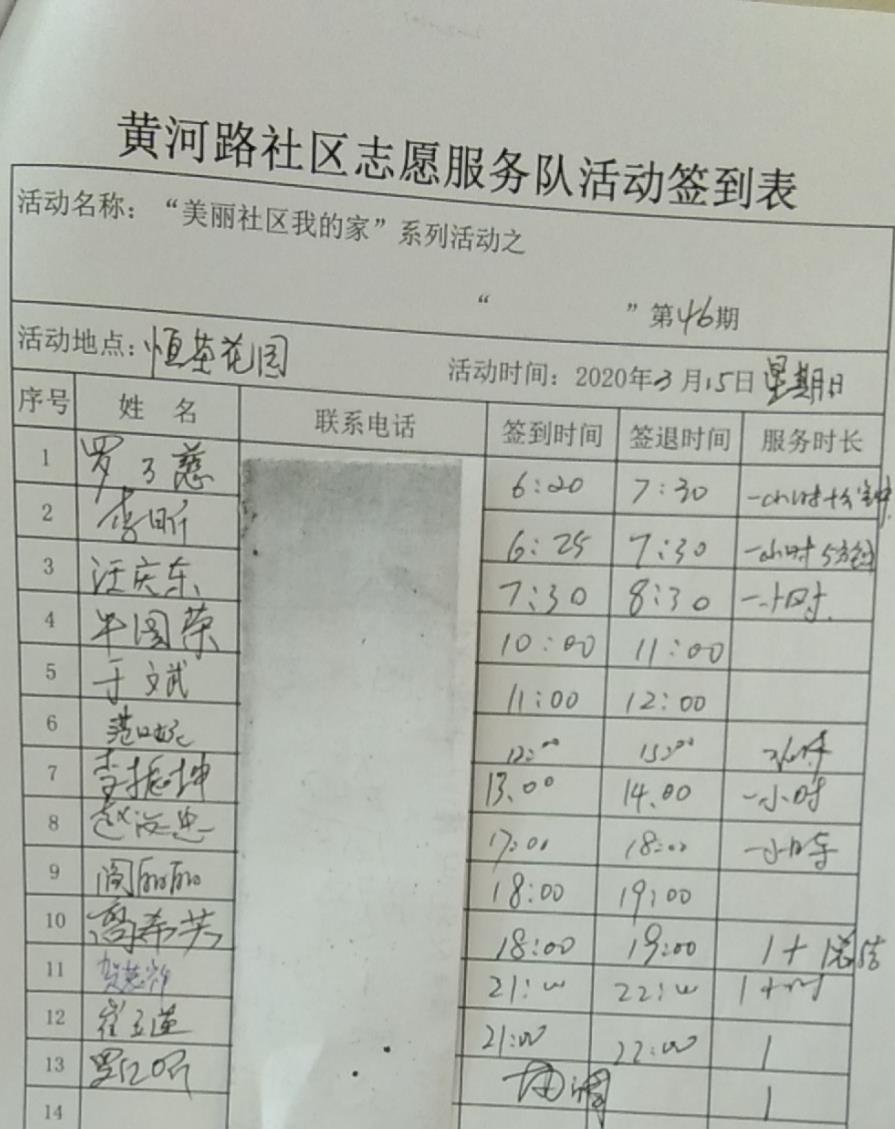 黄河路社区志愿服务队活动签到表
活动名称：“美丽社区我的家”系列活动之
“ ”第46期
活动地点：恒基花园 活动时间：2020年3月15日 星期日
序号 姓名 联系电话 签到时间 签退时间 服务时长
1 罗 慈 6:20 7:30 一小时十分钟
2 李昕 6:25 7:30 一小时5分钟
3 汪庆东 7:30 8:30 一小时
4 牛国荣 10:00 11:00
5 于文斌 11:00 12:00
6 12:00 15:00
7 李振坤 13.00 14.00 一小时
8 赵海忠 17:00 18:00 一小时
9 阎丽丽 18:00 19:00
10 高希芳 18:00 19:00 1+
11 21:00 22:00 1小时
12 崔玉莲 21:00 22:00 1
13 1
14